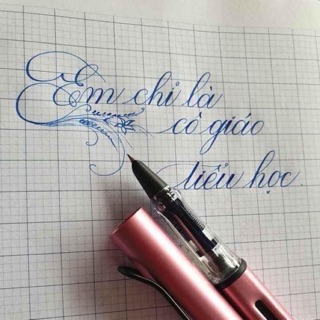 Em chỉ là
cô giáo
tiểu học